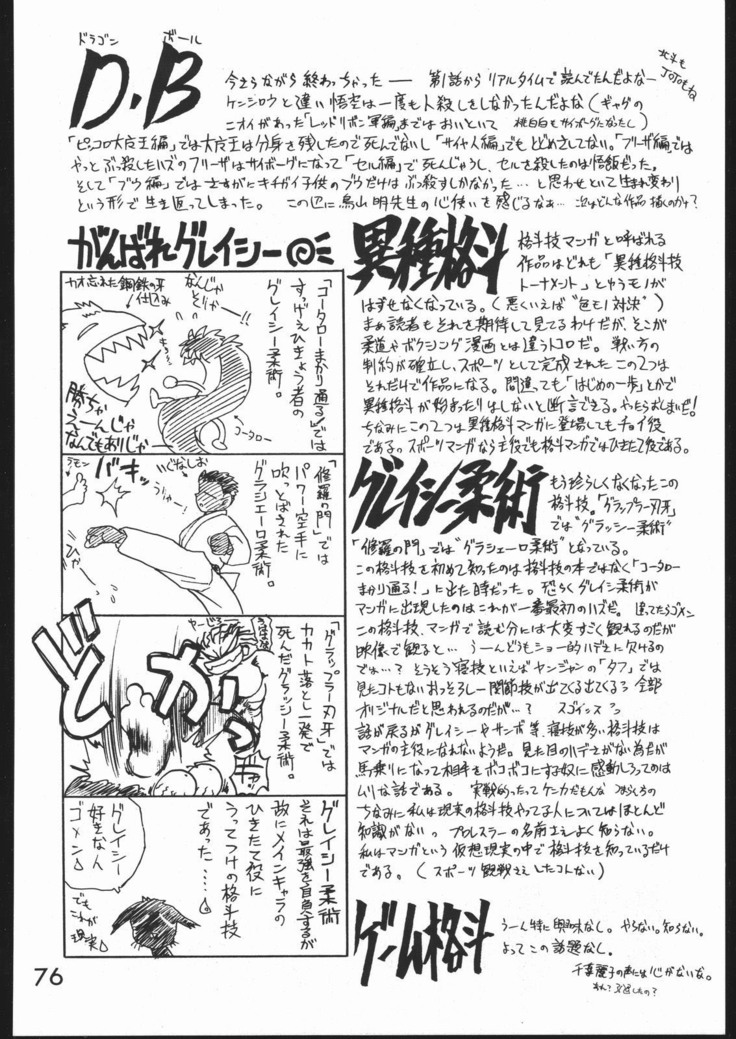 ドラゴン ボール
D.B
北斗も
JOJOもね
今さらながら終わっちゃった── 第1話からリアルタイムで読んでたんだよなー
ケンシロウと違い悟空は一度も人殺しをしなかったんだよな(ギャグの
ニオイがあった「レッドリボン軍編」まではおいといて 桃白白もサイボーグになったし)
「ピッコロ大魔王編」では大魔王は分身を残したので死んでないし「サイヤ人編」でもとどめさしてない。「フリーザ編」では
やっとぶっ殺したハズのフリーザはサイボーグになって「セル編」で死んじゃうし、セルを殺したのは悟飯だった。
そして「ブウ編」ではさすがにキチガイ子供のブウだけはぶっ殺すしかなかった…と思わせといて生まれ変わり
という形で生き返ってしまった。 この辺に鳥山明先生の心使いを感じるなぁ… 次はどんな作品描くのか?
がんばれグレイシー
カオ忘れた鋼鉄の牙
仕込み
なんじゃ
そりゃー!!
「コータローまかり通る」では
すっげえひきょう者の
グレイシー柔術。
勝ちゃ
えーんじゃ
なんでもありじゃ
コータロー
バキッ
ラモン
いじなしお
うりゃー!
「修羅の門」では
パワー空手に
吹っとばされた
グラシエーロ柔術。
どかっ
「グラップラー刃牙」では
カカト落とし一発で
死んだグラッシー柔術。
グレイシー柔術
それは最強を自負するが
故にメインキャラの
ひきたて役に
うってつけの格斗技
であった……。
グレイシー
好きな人
ゴメン
でも
これが
現実
異種格斗
格斗技マンガと呼ばれる
作品はどれも「異種格斗技
トーナメント」とゆうモノが
はずせなくなっている。(悪くいえば"色モノ対決")
まぁ読者もそれを期待して見てるわけだが、そこが
柔道やボクシング漫画とは違うトコロだ。 戦い方の
制約が確立し、スポーツとして完成されたこの2つは
それだけで作品になる。間違っても「はじめの一歩」とかで
異種格斗が始まったりはしないと断言できる。やったらおしまいだ!
ちなみにこの2つは異種格斗マンガに登場してもチョイ役
である。スポーツマンガなら主役でも格斗マンガではひきたて役である。
グレイシー柔術
もう珍らしくなくなったこの
格斗技。「グラップラー刃牙」
では"グラッシー柔術"
「修羅の門」では"グラシエーロ柔術"となっている。
この格斗技を初めて知ったのは格斗技の本ではなく「コータロー
まかり通る!」に出た時だった。恐らくグレイシー柔術が
マンガに出現したのはこれが一番最初のハズだ。 違ってたらゴメン
この格斗技、マンガで読む分には大変すごく観れるのだが
映像で観ると… うーんどうもショー的ハデさに欠けるの
でね…? そうそう寝技といえばヤンジャンの「タフ」では
見たコトもないおっそろしー関節技が出てくる出てくる 全部
オリジナルだと思われるのだが…? スゴイッス
話が戻るがグレイシーやサンボ等、寝技が多い格斗技は
マンガの主役になれないようだ。見た目のハデさがない為だが
馬乗りになって相手をボコボコにする奴に感動しろってのは
ムリな話である。 実戦的ったってケンカだもんな
ちなみに私は現実の格斗技やってる人についてはほとんど
知識がない。 プロレスラーの名前さえよく知らない。
私はマンガという仮想現実の中で格斗技を知っているだけ
である。(スポーツ観戦さえしたコトない)
ゲーム格斗
うーん特に興味なし。やらない。知らない。
よってこの話題なし。
千葉麗子の声には心がないな。
76